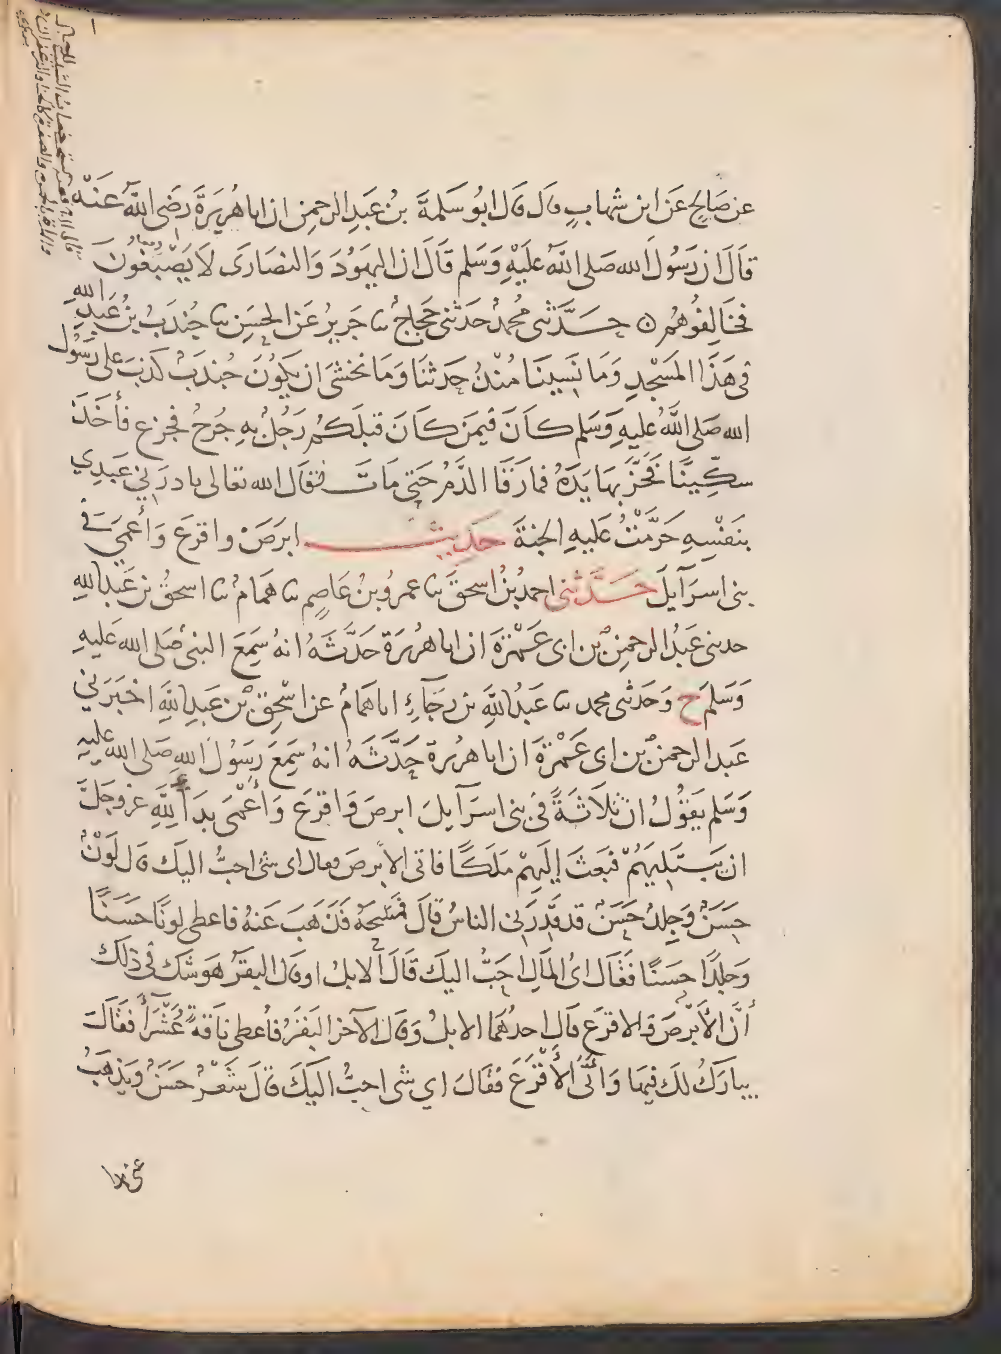 عن صَالِحٍ عَن ابن شهابٍ قال قال ابُو سَلمة بنُ عبدِ الرحمن ان ابا هُرَيرَةَ رضي اللهُ عَنْه
قالَ ان رَسُولَ الله صَلى اللهُ عليْهِ وَسَلم قالَ ان اليهُودَ وَالنصَارَى لاَ يَصْبغُونَ
فخَالِفُوهُم ۞ حَدَّثنى محمدٌ حَدثنى حجاجٌ ثنا جَريرٌ عَن الحسَن ثنا جُندَبُ بنُ عَبدِ الله
فى هَذَا المَسْجِدِ وَمَا نَسِينَا مُنْذُ حَدثنَا وَمَا نخشَى ان يكُونَ جُندَبُ كذبَ على رسُول
الله صَلى اللهُ عليهِ وَسَلم كانَ فيمَن كانَ قبلكُم رَجُلٌ بهِ جُرحٌ فجزع فأخَذَ
سكِّينًا فحَزَّ بهَا يَدَهُ فمارَقَا الدَّمُ حَتى مَاتَ فقَال الله تعالى بادرَني عَبدِي
بنَفْسِهِ حَرَّمْتُ عَليهِ الجنةَ حَدِيث ابرَصَ واقرَعَ وَأعْمَى في
بنى اسرَآيلَ حَدَّثنى احمدُ بنُ اسحقَ ثنا عمرُو بنُ عَاصِمٍ ثنا همَامٌ ثنا اسحقُ بن عَبدِ الله
حدثنى عَبدُ الرحمنِ بن ابى عَمْرَةَ ان ابا هُرَيرَةَ حَدَّثهُ انهُ سمِعَ النبىَّ صَلى الله عليهِ
وَسَلمَ ح وَحَدثنى محمد ثنا عَبدُ اللهِ بن رجَآءٍ انا همَامٌ عن اسْحَق بن عَبدِ اللهِ اخبَرَني
عَبد الرحمن بن ابى عَمْرَةَ ان ابا هُرَيرةَ حَدَّثهُ انهُ سمِعَ رَسُولَ اللهِ صَلى الله عليهِ
وَسَلم يَقُولُ ان ثلاَثَةً فى بنى اسرَآيلَ ابرصَ وَاقرَعَ وَأعْمَى بدَأ للهِ عز وجَلَّ
ان يَبتَلِيَهُمْ فبَعَثَ إليهِمْ مَلَكًا فاتى الأبرصَ فقال اى شىء احبُّ اليكَ قال لَوْنٌ
حسَنٌ وَجلدٌ حَسَنٌ قد قذِرَني الناسُ قالَ فمَسَحَهُ فذَهَبَ عَنهُ فاعطى لونًا حَسَنًا
وَجلدًا حسَنًا فقَال اىُّ المَالِ احَبُّ اليكَ قالَ الابلُ او قال البقرُ هوَ شكَّ فى ذلكَ
أنَّ الأَبرَصَ والاقرَعَ قال احدُهُمَا الابلُ وَقالَ الآخر البقرُ فاُعطى ناقةً عُشَرَآءَ فقالَ
يبارَكُ لكَ فيهَا وَأتَى الأَقْرَعَ فقالَ اي شى احبُّ اليكَ قالَ شَعْرٌ حَسَنٌ وَيَذهَبُ